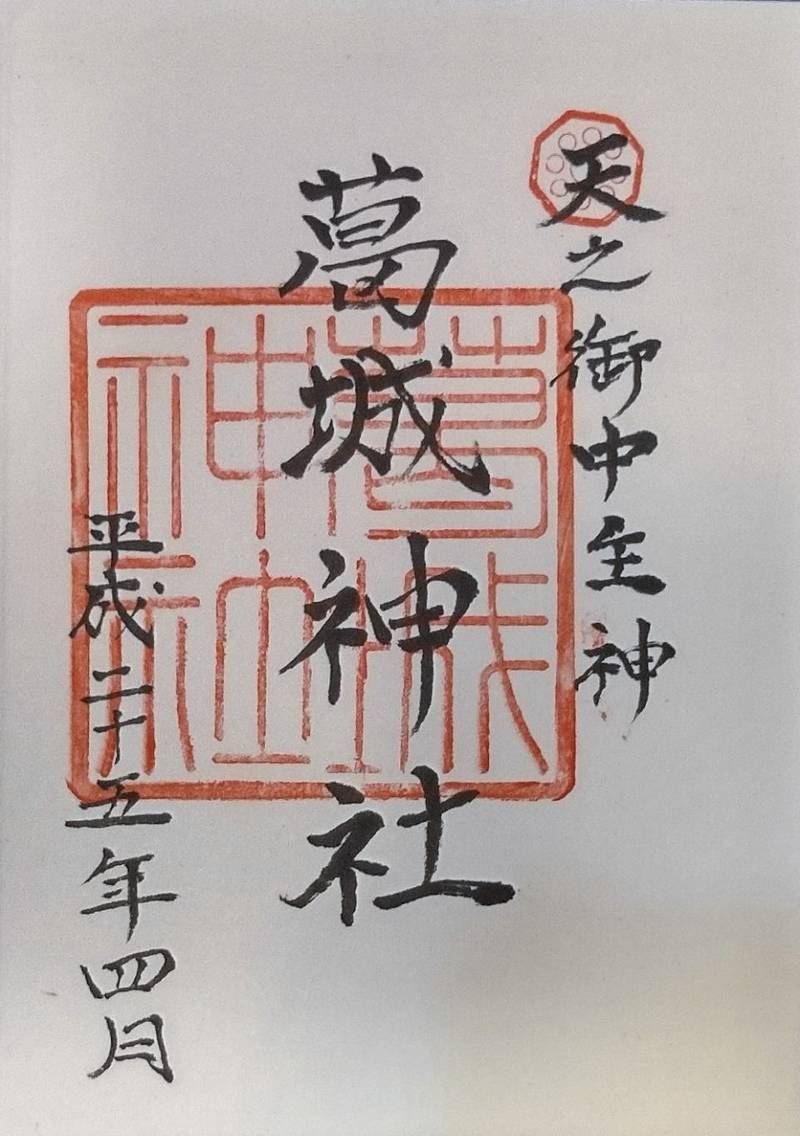 天之御中主神
葛城神社
平成二十五年四月
葛城
神社